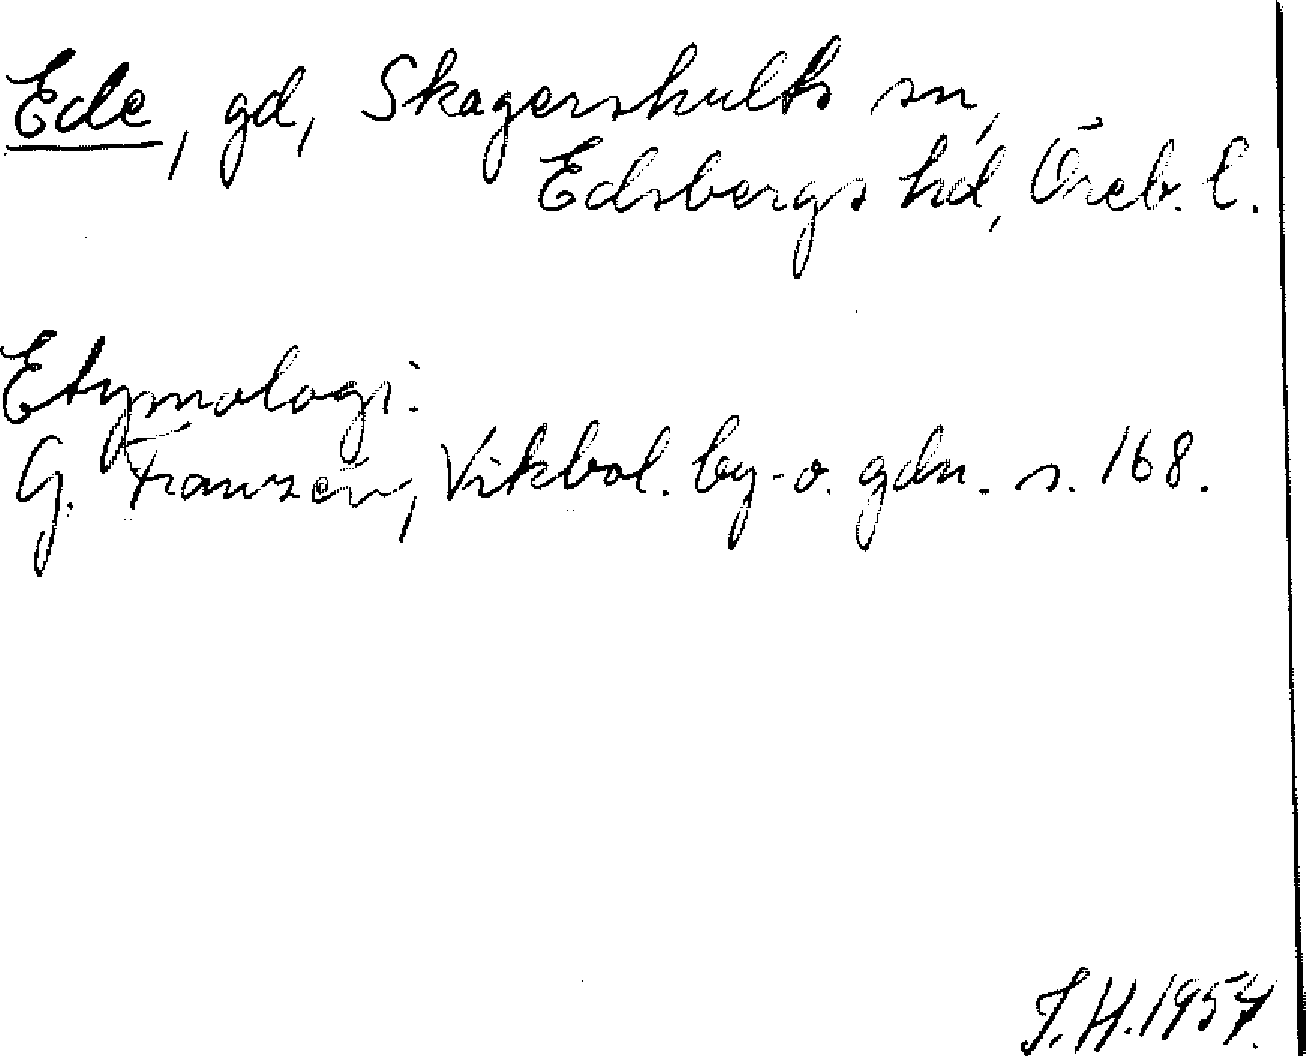 Ede, gd, Skagershults sn,
Edsbergs hd, Öreb. l.
Etymologi:
G. Franzén, Vikbol. by- o. gdn. s. 168.
J. H. 1957.